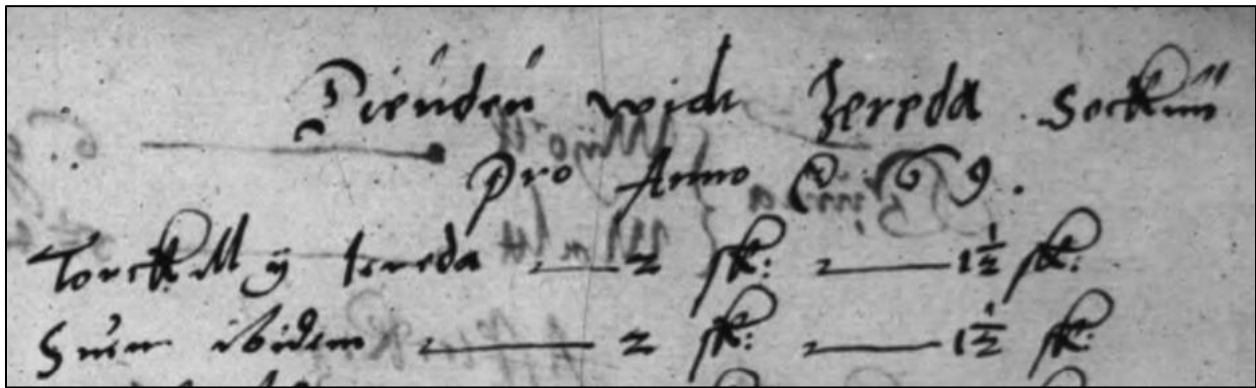 Tienden widh Jereda Sockun
Pro Anno (69.
Torckill ij Jereda — 2 sk: — 1½ sk:
Suen ibidem — 2 sk: — 1½ sk: